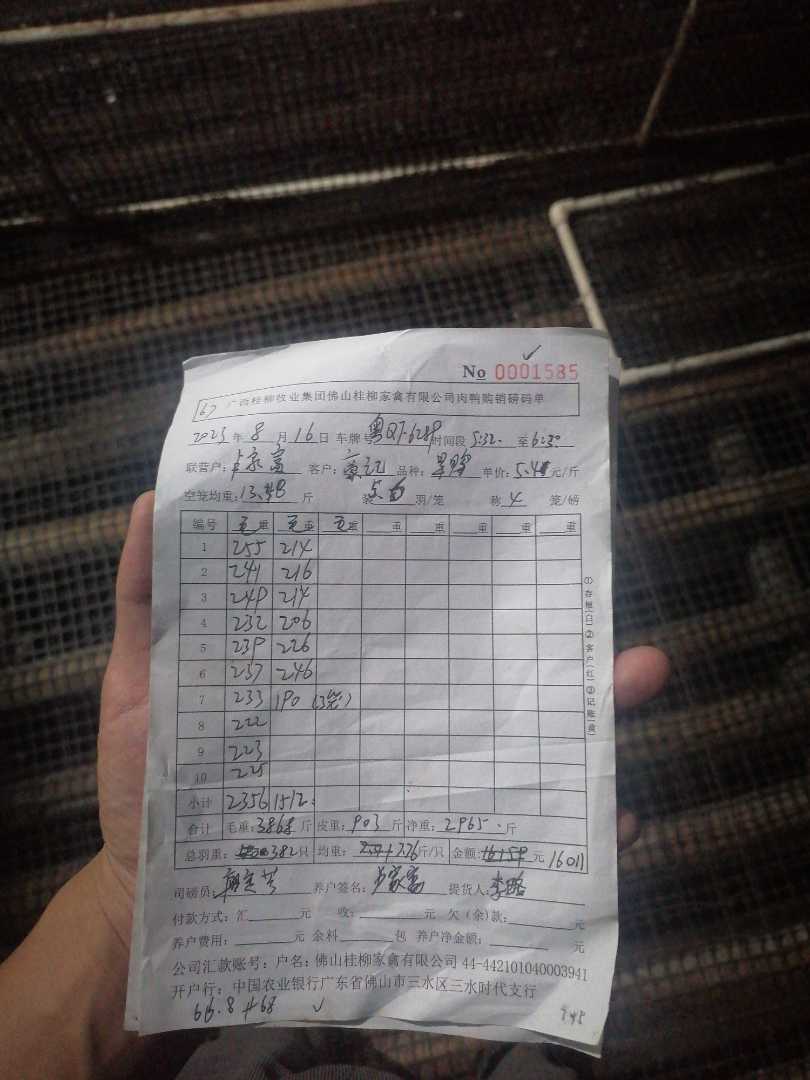 No 0001585
67 广西桂柳牧业集团佛山桂柳家禽有限公司肉鸭购销磅码单
2023年8月16日 车牌号 时间段5:32.至6:30
联营户:卢家富 客户: 品种: 单价:5.4元/斤
空笼均重:13.48斤 装 羽/笼 称4笼/磅
编号 毛重 毛重 毛重 重 重 重 重 重
1 255 214
2 241 216
3 249 214
4 232 206
5 239 226
6 237 246
7 233 190 (3笼)
8 222
9 223
10 225
小计 2356 1512
合计 毛重:3868斤 皮重:903斤 净重:2965斤
总羽重:382只 均重:7.76斤/只 金额: 元 16011
司磅员: 养户签名:卢家富 提货人:
付款方式:汇 元 收: 元 欠(余)款: 元
养户费用: 元 余料 包 养户净金额: 元
公司汇款账号:户名:佛山桂柳家禽有限公司 44-442101040003941
开户行:中国农业银行广东省佛山市三水区三水时代支行
66.8 #68
①存根(白)②客户(红)③记账(黄)